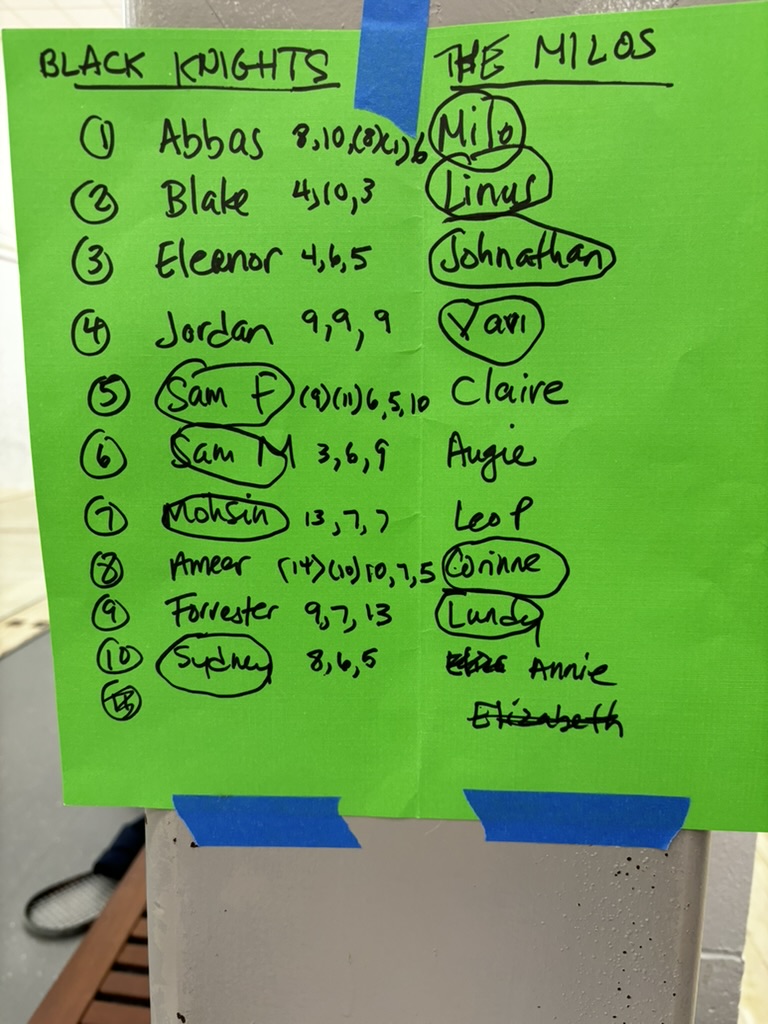 BLACK KNIGHTS THE MILOS
① Abbas 8,10,(8)(1)6 Milo
② Blake 4,10,3 Linus
③ Eleanor 4,6,5 Johnathan
④ Jordan 9,9,9
⑤ Sam F (9)(11)6,5,10 Claire
⑥ Sam M 3,6,9 Augie
⑦ Mohsin 13,7,7 Leo P
⑧ Ameer (14)(10)10,7,5 Corinne
⑨ Forrester 9,7,13 Lundy
⑩ Sydney 8,6,5 Annie
Elizabeth